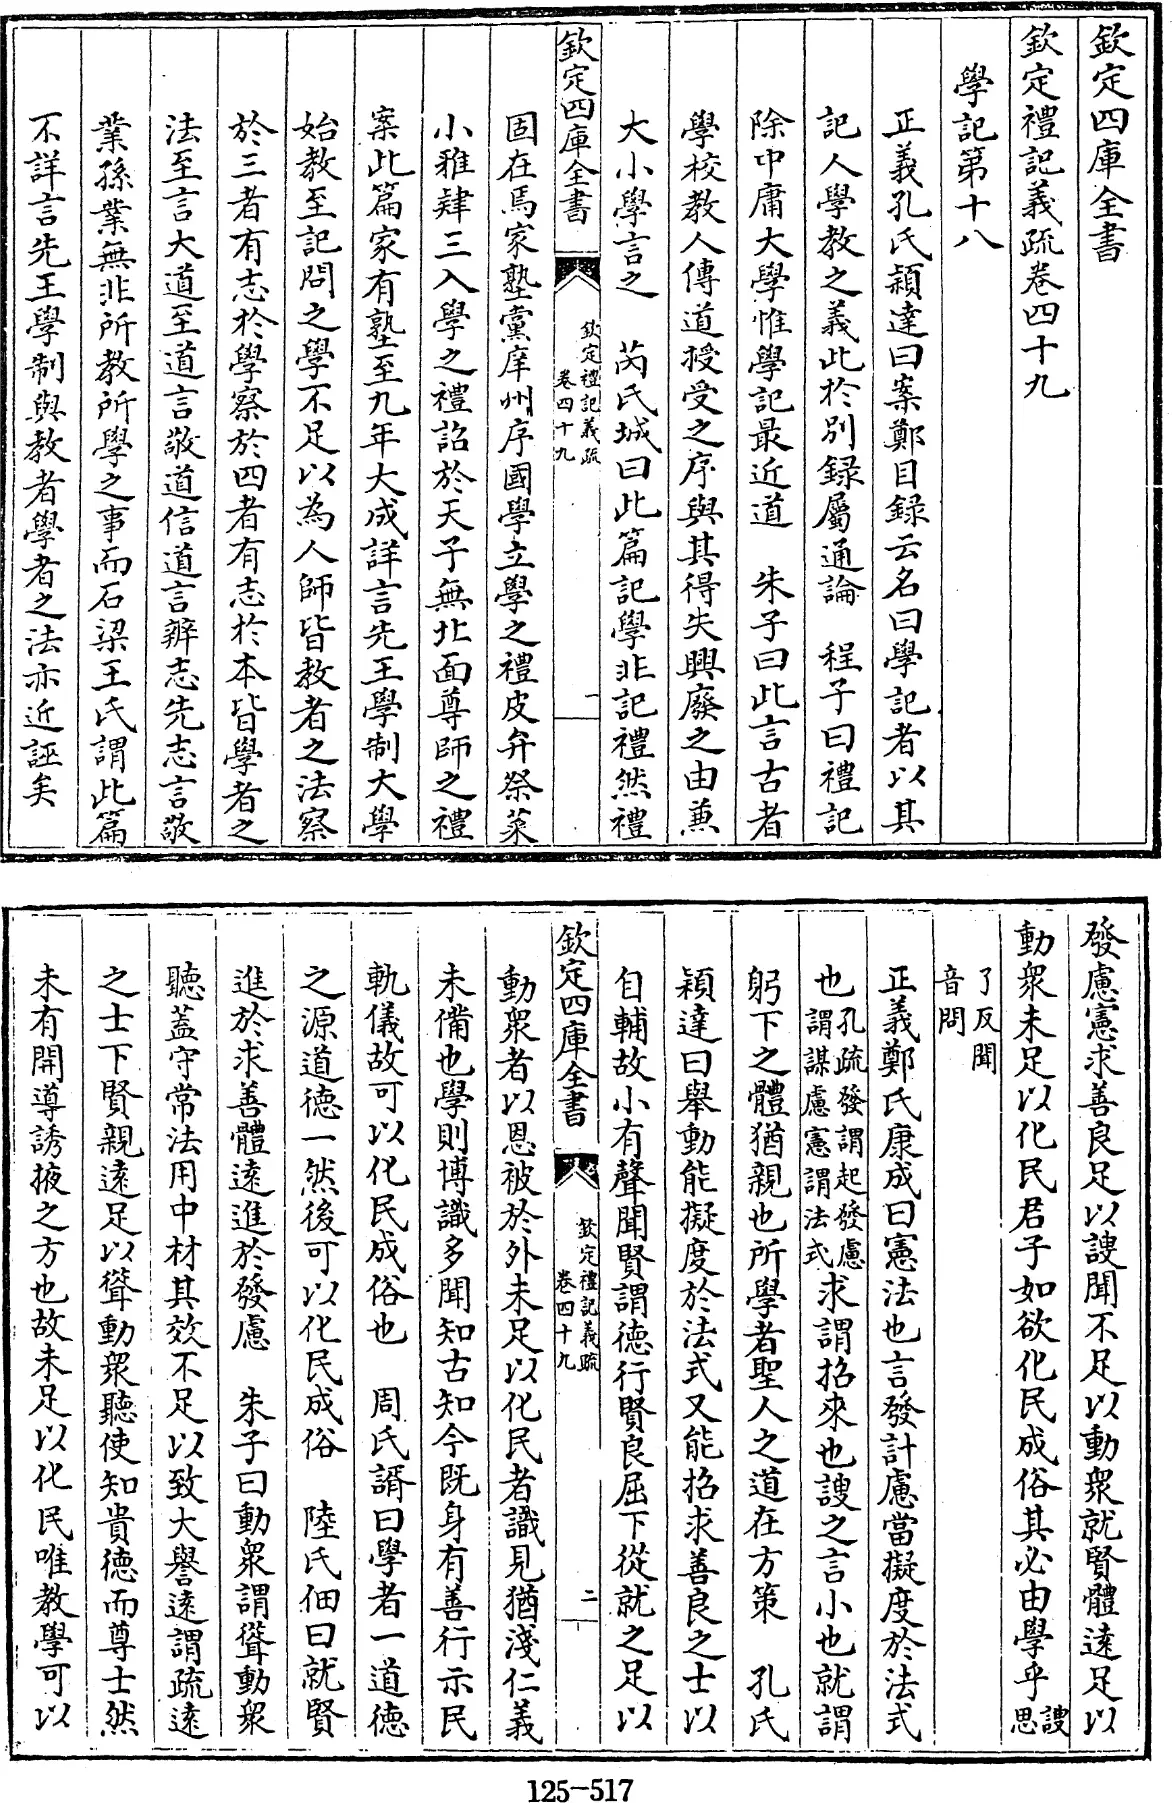 欽定四庫全書
欽定禮記義疏卷四十九
學記第十八
正義孔氏穎達曰案鄭目録云名曰學記者以其
記人學教之義此於別録屬通論　程子曰禮記
除中庸大學惟學記最近道　朱子曰此言古者
學校教人傳道授受之序與其得失興廢之由兼
大小學言之　芮氏城曰此篇記學非記禮然禮
欽定四庫全書　欽定禮記義疏　卷四十九　一
固在焉家塾黨庠州序國學立學之禮皮弁祭菜
小雅肄三入學之禮詔於天子無北面尊師之禮
案此篇家有塾至九年大成詳言先王學制大學
始教至記問之學不足以為人師皆教者之法察
於三者有志於學察於四者有志於本皆學者之
法至言大道至道言敬道信道言辨志先志言敬
業孫業無非所教所學之事而石梁王氏謂此篇
不詳言先王學制與教者學者之法亦近誣矣
發慮憲求善良足以謏聞不足以動衆就賢體遠足以
動衆未足以化民君子如欲化民成俗其必由學乎謏思
了反聞音問
正義鄭氏康成曰憲法也言發計慮當擬度於法式
也孔疏發謂起發慮謂謀慮憲謂法式求謂招來也謏之言小也就謂
躬下之體猶親也所學者聖人之道在方策　孔氏
穎達曰舉動能擬度於法式又能招求善良之士以
自輔故小有聲聞賢謂德行賢良屈下從就之足以
欽定四庫全書　欽定禮記義疏　卷四十九　二
動衆者以恩被於外未足以化民者識見猶淺仁義
未備也學則博識多聞知古知今既身有善行示民
軌儀故可以化民成俗也　周氏諝曰學者一道德
之源道德一然後可以化民成俗　陸氏佃曰就賢
進於求善體遠進於發慮　朱子曰動衆謂聳動衆
聽蓋守常法用中材其效不足以致大譽遠謂疏遠
之士下賢親遠足以聳動衆聽使知貴德而尊士然
未有開導誘掖之方也故未足以化民唯教學可以
125-517